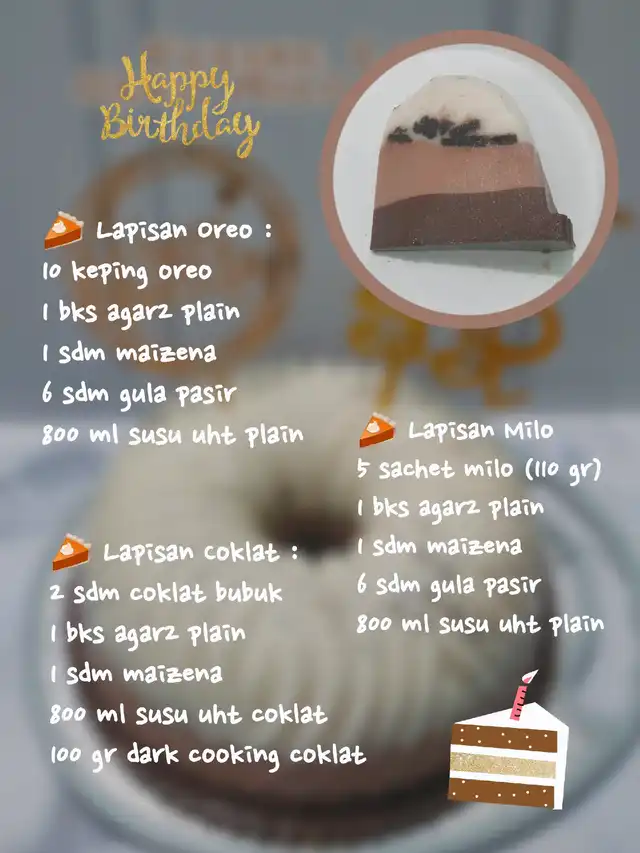 Happy
Birthday
Lapisan Oreo :
10 keping oreo
1 bks agar2 plain
1 sdm maizena
6 sdm gula pasir
800 ml susu uht plain
Lapisan Milo
5 sachet milo (110 gr)
1 bks agar2 plain
1 sdm maizena
6 sdm gula pasir
800 ml susu uht plain
Lapisan coklat :
2 sdm coklat bubuk
1 bks agar2 plain
1 sdm maizena
800 ml susu uht coklat
100 gr dark cooking coklat